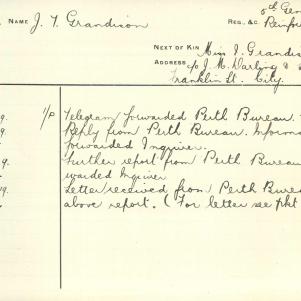 NAME J. T. Grandison
5th Gen
REG. &C. Reinfo
NEXT OF KIN Miss I. Grandis
ADDRESS c/o J. M. Darling &
Franklin St. City.
9. 1/P Telegram forwarded Perth Bureau.
Reply from Perth Bureau. Informa
forwarded Inquirer.
9. Further report from Perth Bureau
warded Inquirer
19. Letter received from Perth Burea
above report. (For letter see pkt